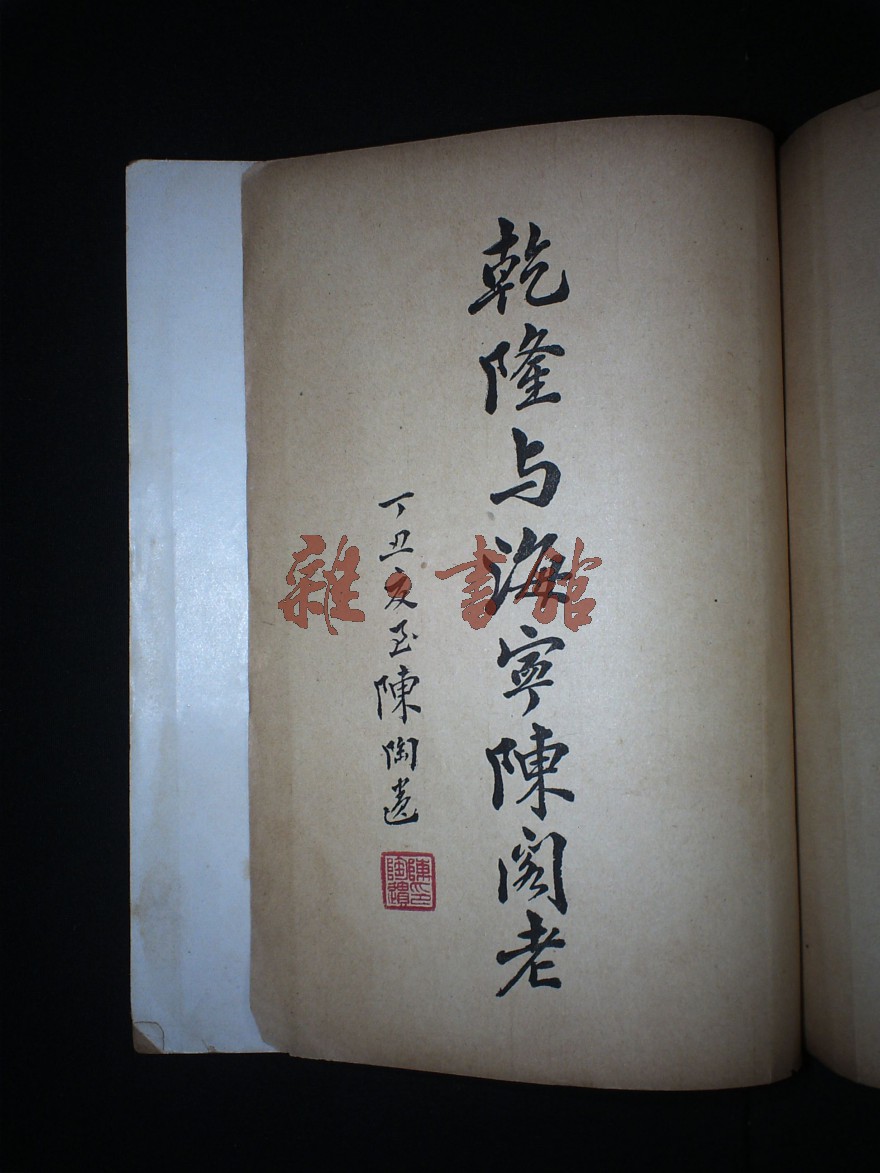 乾隆与海寧陳阁老
丁丑夏至陳陶遺
陳印陶遺
雜·書館